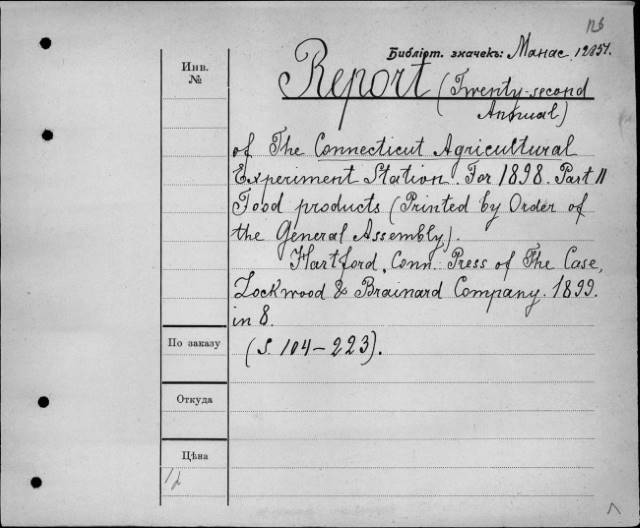 Библіот. значекъ: Манас 12151.
Инв.
№
Report (Twenty-second
Annual)
of The Connecticut Agricultural
Experiment Station. For 1898. Part II
Food products (Printed by Order of
the General Assembly).
Hartford, Conn. Press of The Case,
Lockwood & Brainard Company. 1899.
in 8.
(S. 104-223).
По заказу
Откуда
Цѣна